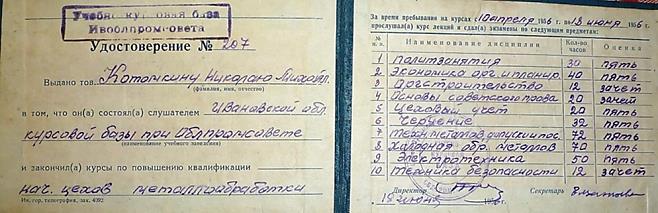 Учебно-курсовая база
Ивоблпромсовета
Удостоверение № 207
Выдано тов. Котомкину Николаю Михайл.
(фамилия, имя, отчество)
в том, что он(а) состоял(а) слушателем Ивановской обл.
курсовой базы при Облпромсовете
(наименование учебного заведения)
и закончил(а) курсы по повышению квалификации
нач. цехов металлообработки
Ив. гор. типография, зак. 4392
За время пребывания на курсах с 10 апреля 1956 г. по 18 июня 1956 г.
прослушал(а) курс лекций и сдал(а) экзамены по следующим предметам:
№ п. п. Наименование дисциплин Кол-во часов Оценка
1 Политзанятия 30 пять
2 Экономика орг. и планир. 40 пять
3 12 зачет
4 Основы советского права 20 зачет
5 Цеховый учет 20 пять
6 Черчение 32 пять
7 Техн. металлов, допуски и пос. 72 пять
8 Холодная обр. металлов 70 пять
9 Электротехника 50 пять
10 Техника безопасности 12 зачет
Директор Секретарь
18 июня 1956 г.